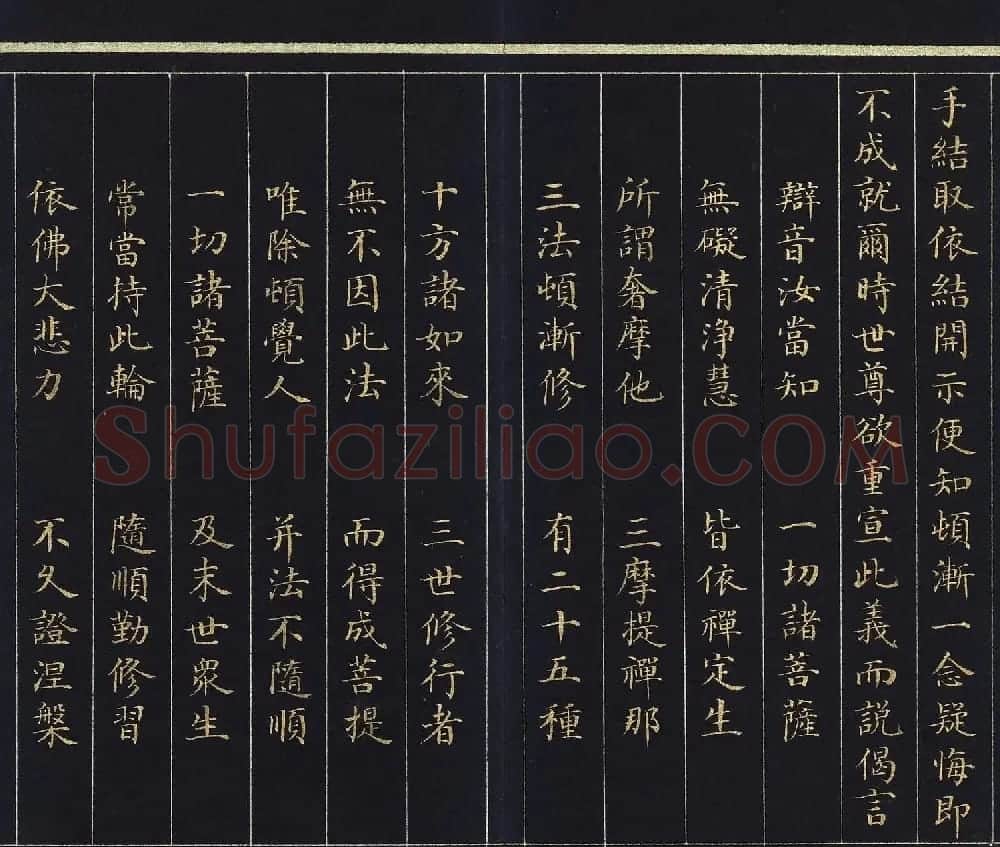 手結取依結開示便知頓漸一念疑悔即
不成就爾時世尊欲重宣此義而説偈言
辯音汝當知　一切諸菩薩
無礙清淨慧　皆依禪定生
所謂奢摩他　三摩提禪那
三法頓漸修　有二十五種
十方諸如來　三世修行者
無不因此法　而得成菩提
唯除頓覺人　并法不隨順
一切諸菩薩　及末世衆生
常當持此輪　隨順勤修習
依佛大悲力　不久證涅槃
Shufaziliao.COM